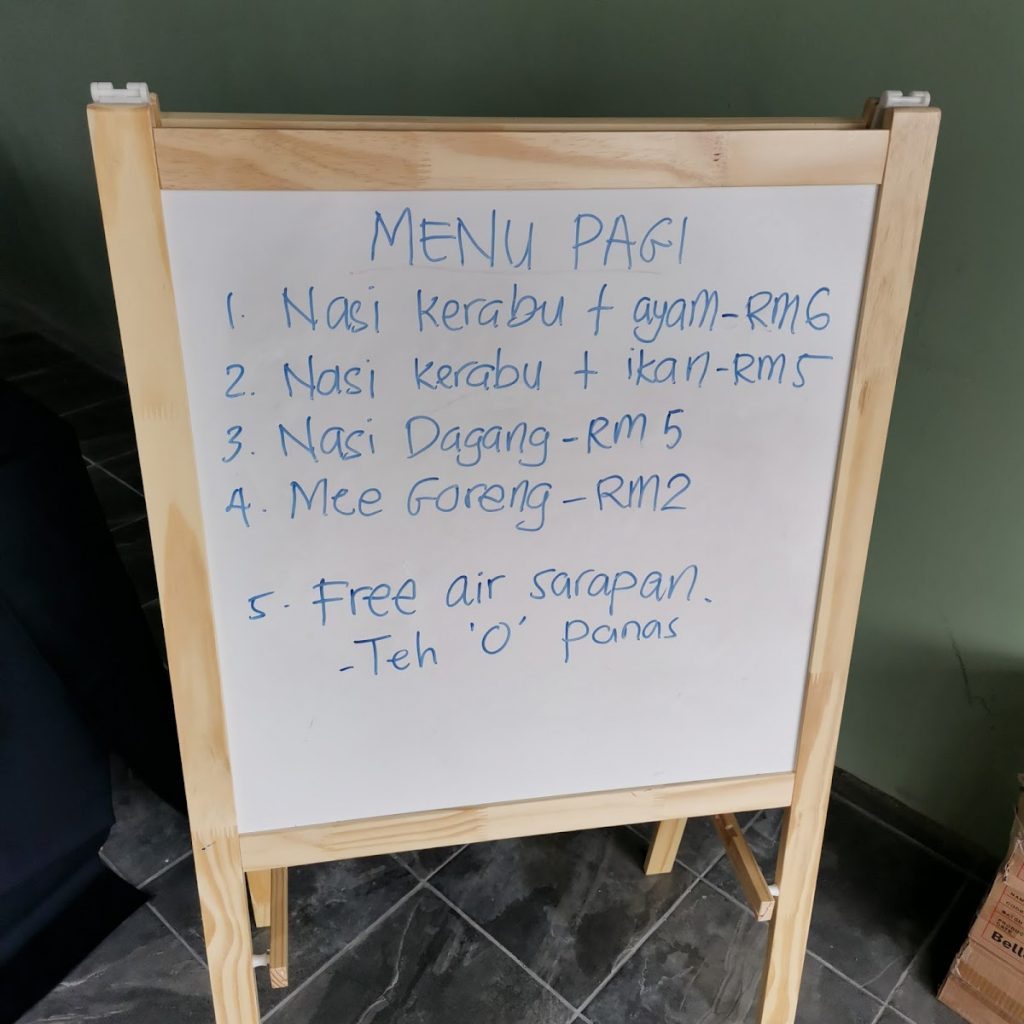 MENU PAGI
1. Nasi kerabu + ayam-RM6
2. Nasi kerabu + ikan-RM5
3. Nasi Dagang-RM5
4. Mee Goreng-RM2
5. Free air sarapan.
-Teh 'O' panas
Bell